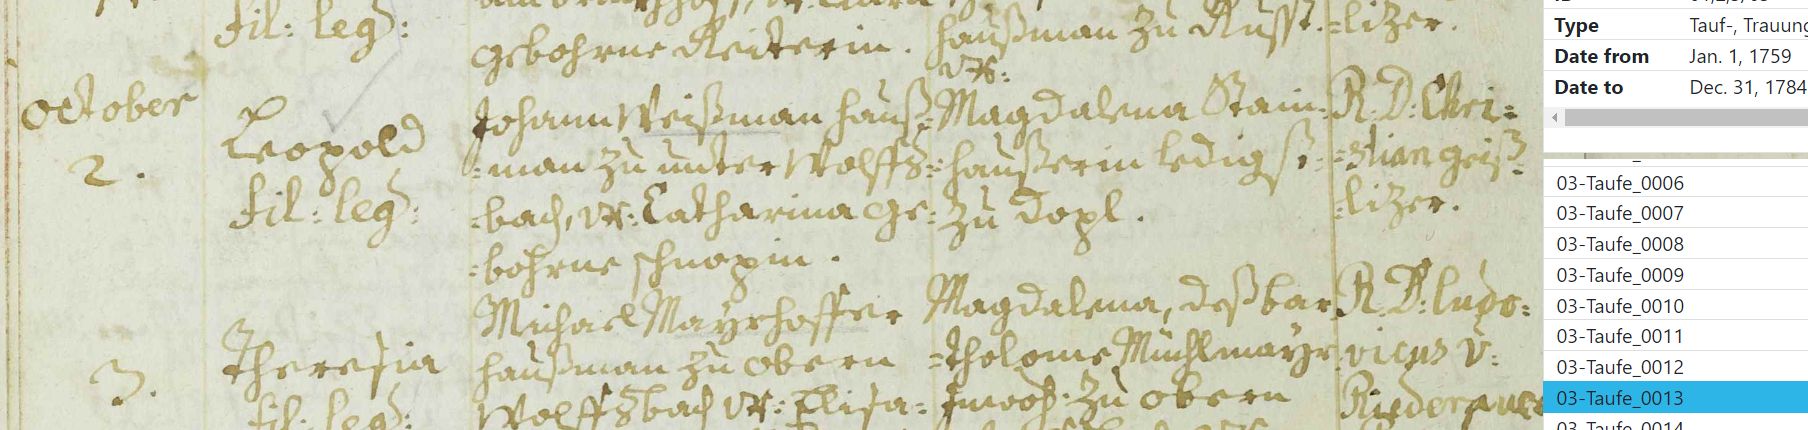 fil: leg:
gebohrne Reiterin.
haußman zu
=lizer.
ux:
October
2.
Leopold
fil: leg:
Johann Weißman hauß=
=man zu unter Wolffs=
=bach, ux: Catharina ge=
=bohrne schnopin.
Magdalena Stain=
=haußerin ledigs:
zu Dopl.
R: D: Chri=
=stian geiß=
=lizer.
3.
Theresia
fil: leg:
Michael Mayrhoffer
haußman zu obern
Wolffsbach ux: Elisa=
Magdalena, deß bar=
=tholome Mühlmayr
inwoh: zu obern
R: D: ludo=
vicus v:
Type Tauf-, Trauung
Date from Jan. 1, 1759
Date to Dec. 31, 1784
03-Taufe_0006
03-Taufe_0007
03-Taufe_0008
03-Taufe_0009
03-Taufe_0010
03-Taufe_0011
03-Taufe_0012
03-Taufe_0013
03-Taufe_0014